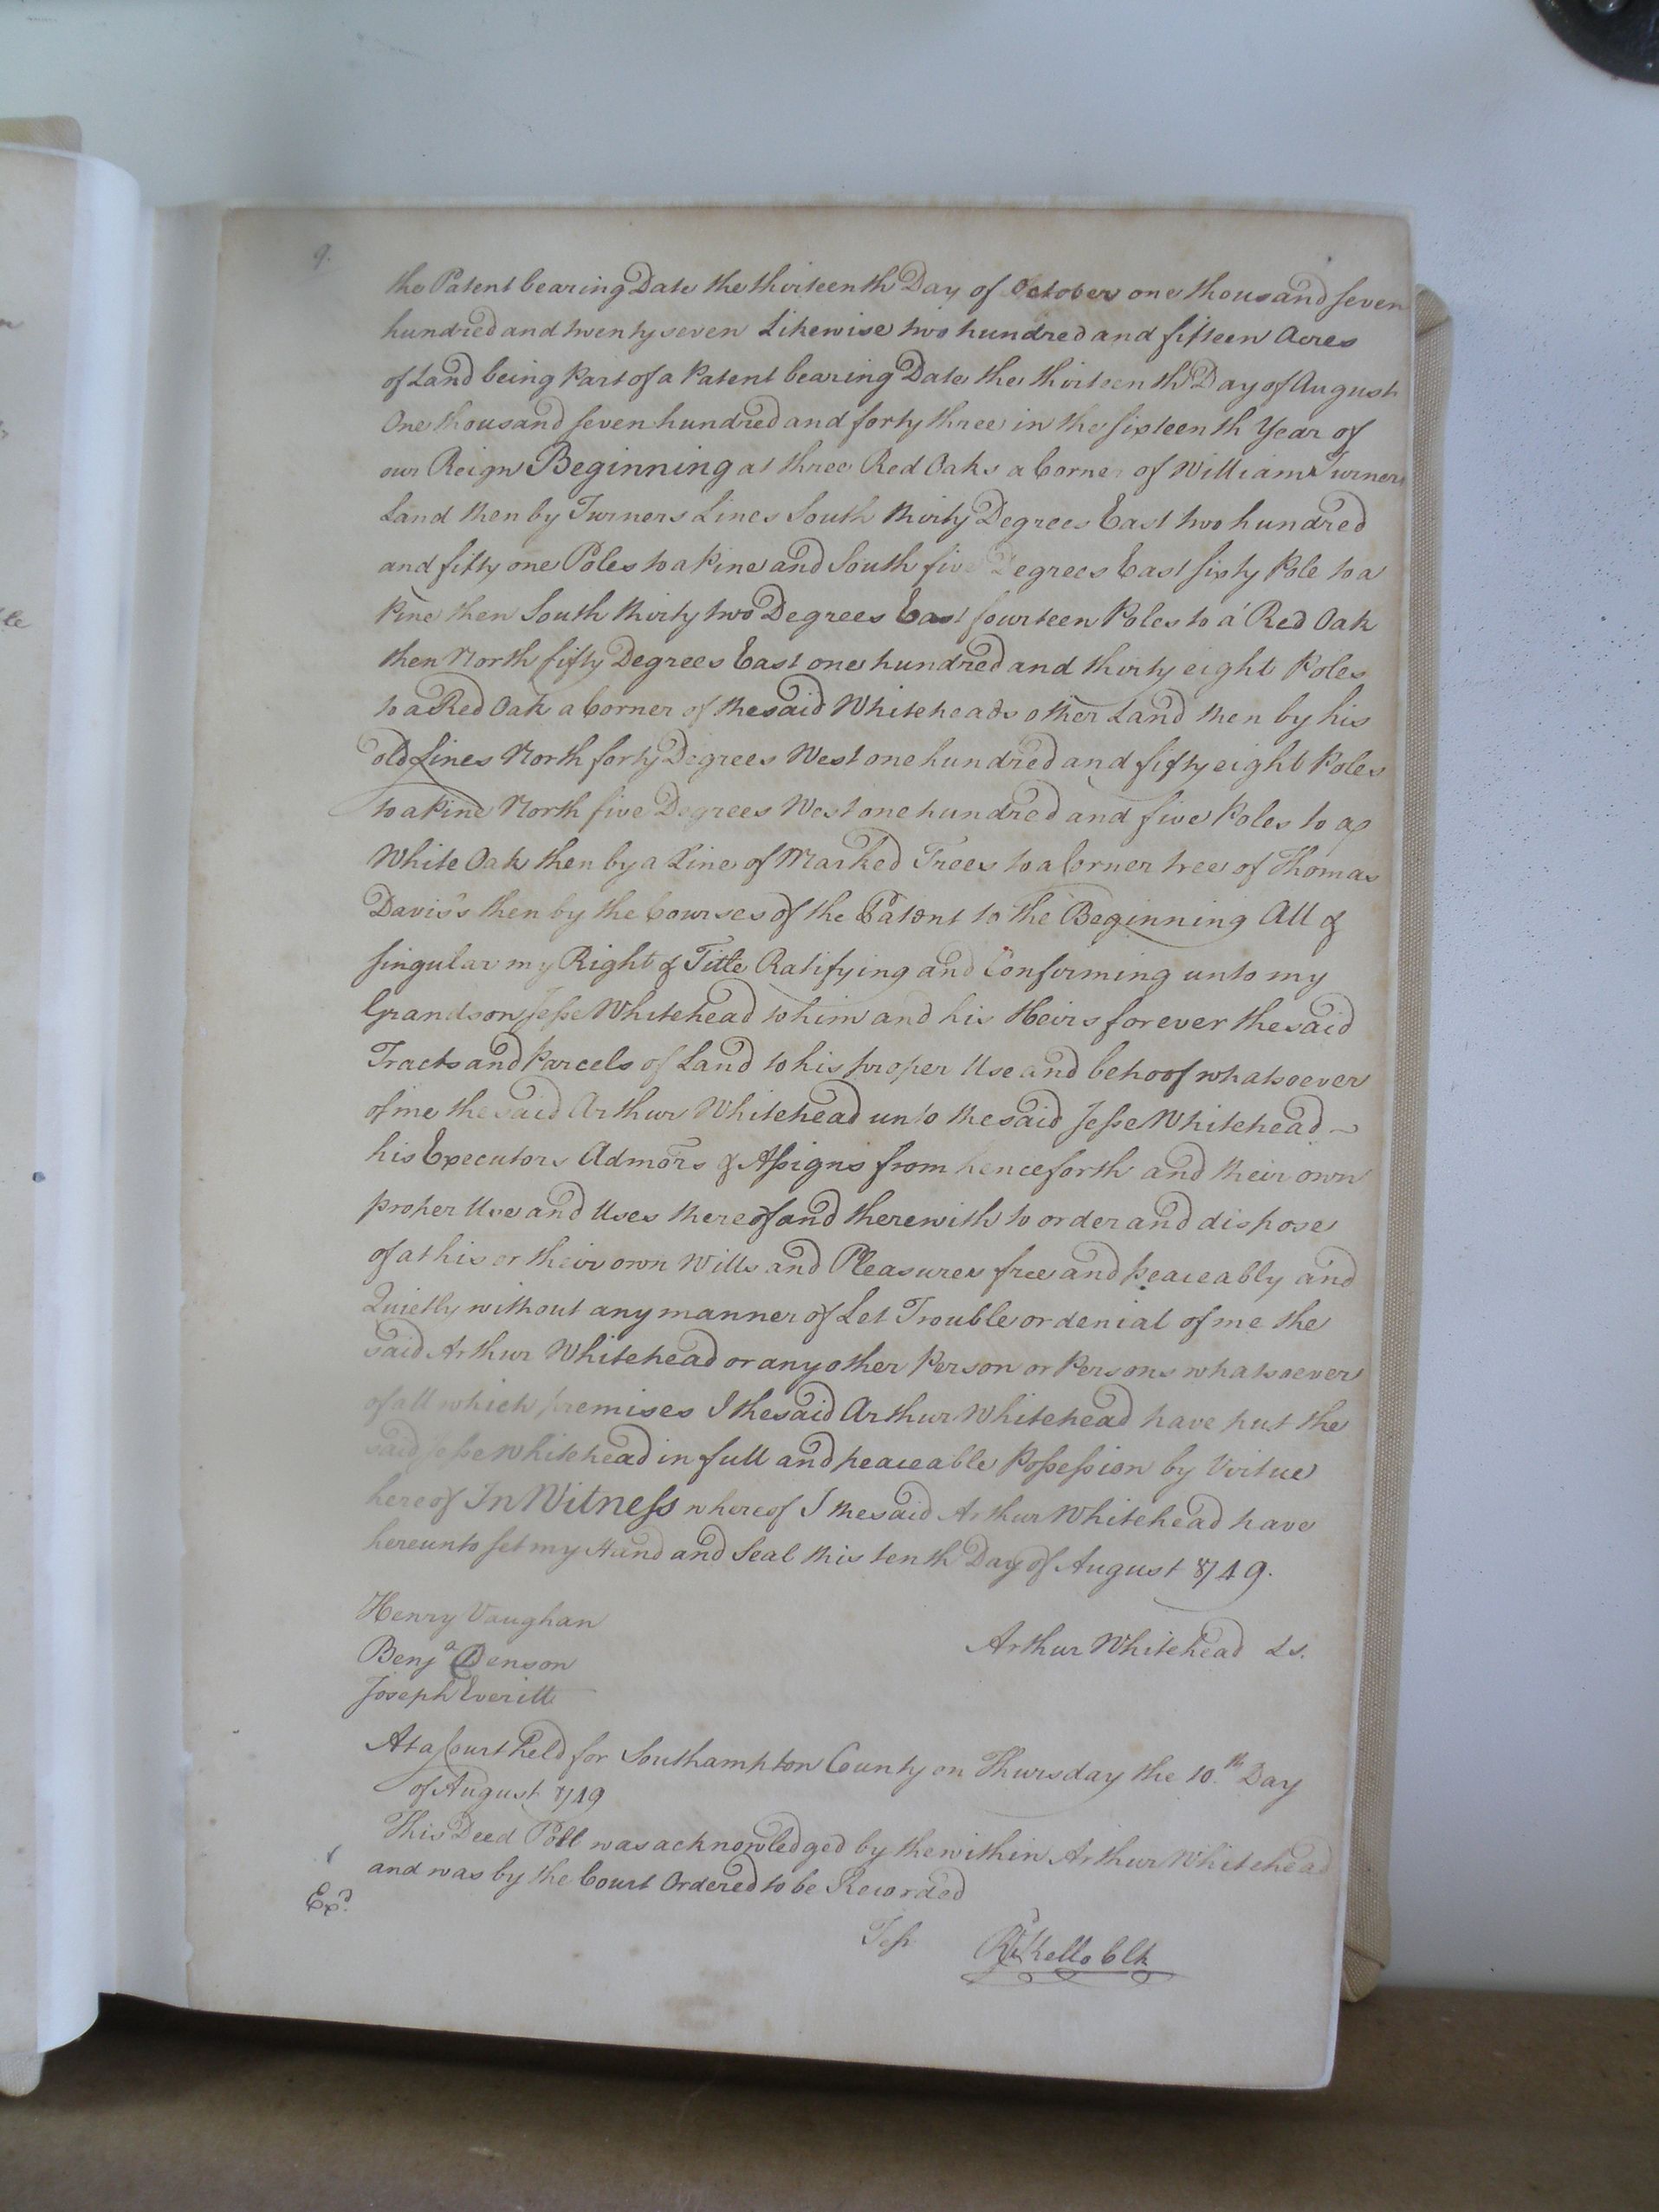 9.
the Patent bearing Date the thirteenth Day of October one thousand seven
hundred and twenty seven Likewise two hundred and fifteen Acres
of Land being Part of a Patent bearing Date the thirteenth Day of August
One thousand seven hundred and forty three in the sixteenth Year of
our Reign Beginning at three Red Oaks a Corner of William Turners
Land then by Turners Lines South thirty Degrees East two hundred
and fifty one Poles to a Pine and South five Degrees East sixty Pole to a
Pine then South thirty two Degrees East fourteen Poles to a Red Oak
then North fifty Degrees East one hundred and thirty eight Poles
to a Red Oak a Corner of the said Whiteheads other Land then by his
old Lines North forty Degrees West one hundred and fifty eight Poles
to a Pine North five Degrees West one hundred and five Poles to a
White Oak then by a Line of Marked Trees to a Corner tree of Thomas
Davis's then by the Courses of the Patent to the Beginning All &
singular my Right & Title Ratifying and Confirming unto my
Grandson Jesse Whitehead to him and his Heirs forever the said
Tracts and Parcels of Land to his proper Use and behoof whatsoever
of me the said Arthur Whitehead unto the said Jesse Whitehead
his Executors Admors & Assigns from henceforth and their own
proper Use and Uses thereof and therewith to order and dispose
of at his or their own Wills and Pleasures free and peaceably and
Quietly without any manner of Let Trouble or denial of me the
said Arthur Whitehead or any other Person or Persons whatsoever
of all which premises I the said Arthur Whitehead have put the
said Jesse Whitehead in full and peaceable Possession by Virtue
hereof In Witness whereof I the said Arthur Whitehead have
hereunto set my Hand and Seal this tenth Day of August 1749.
Henry Vaughan
Arthur Whitehead L s.
Benja Denson
Joseph Everitt
At a Court held for Southampton County on Thursday the 10.th Day
of August 1749
This Deed Poll was acknowledged by the within Arthur Whitehead
and was by the Court Ordered to be Recorded
Exd.
Test Rd Kello Clk